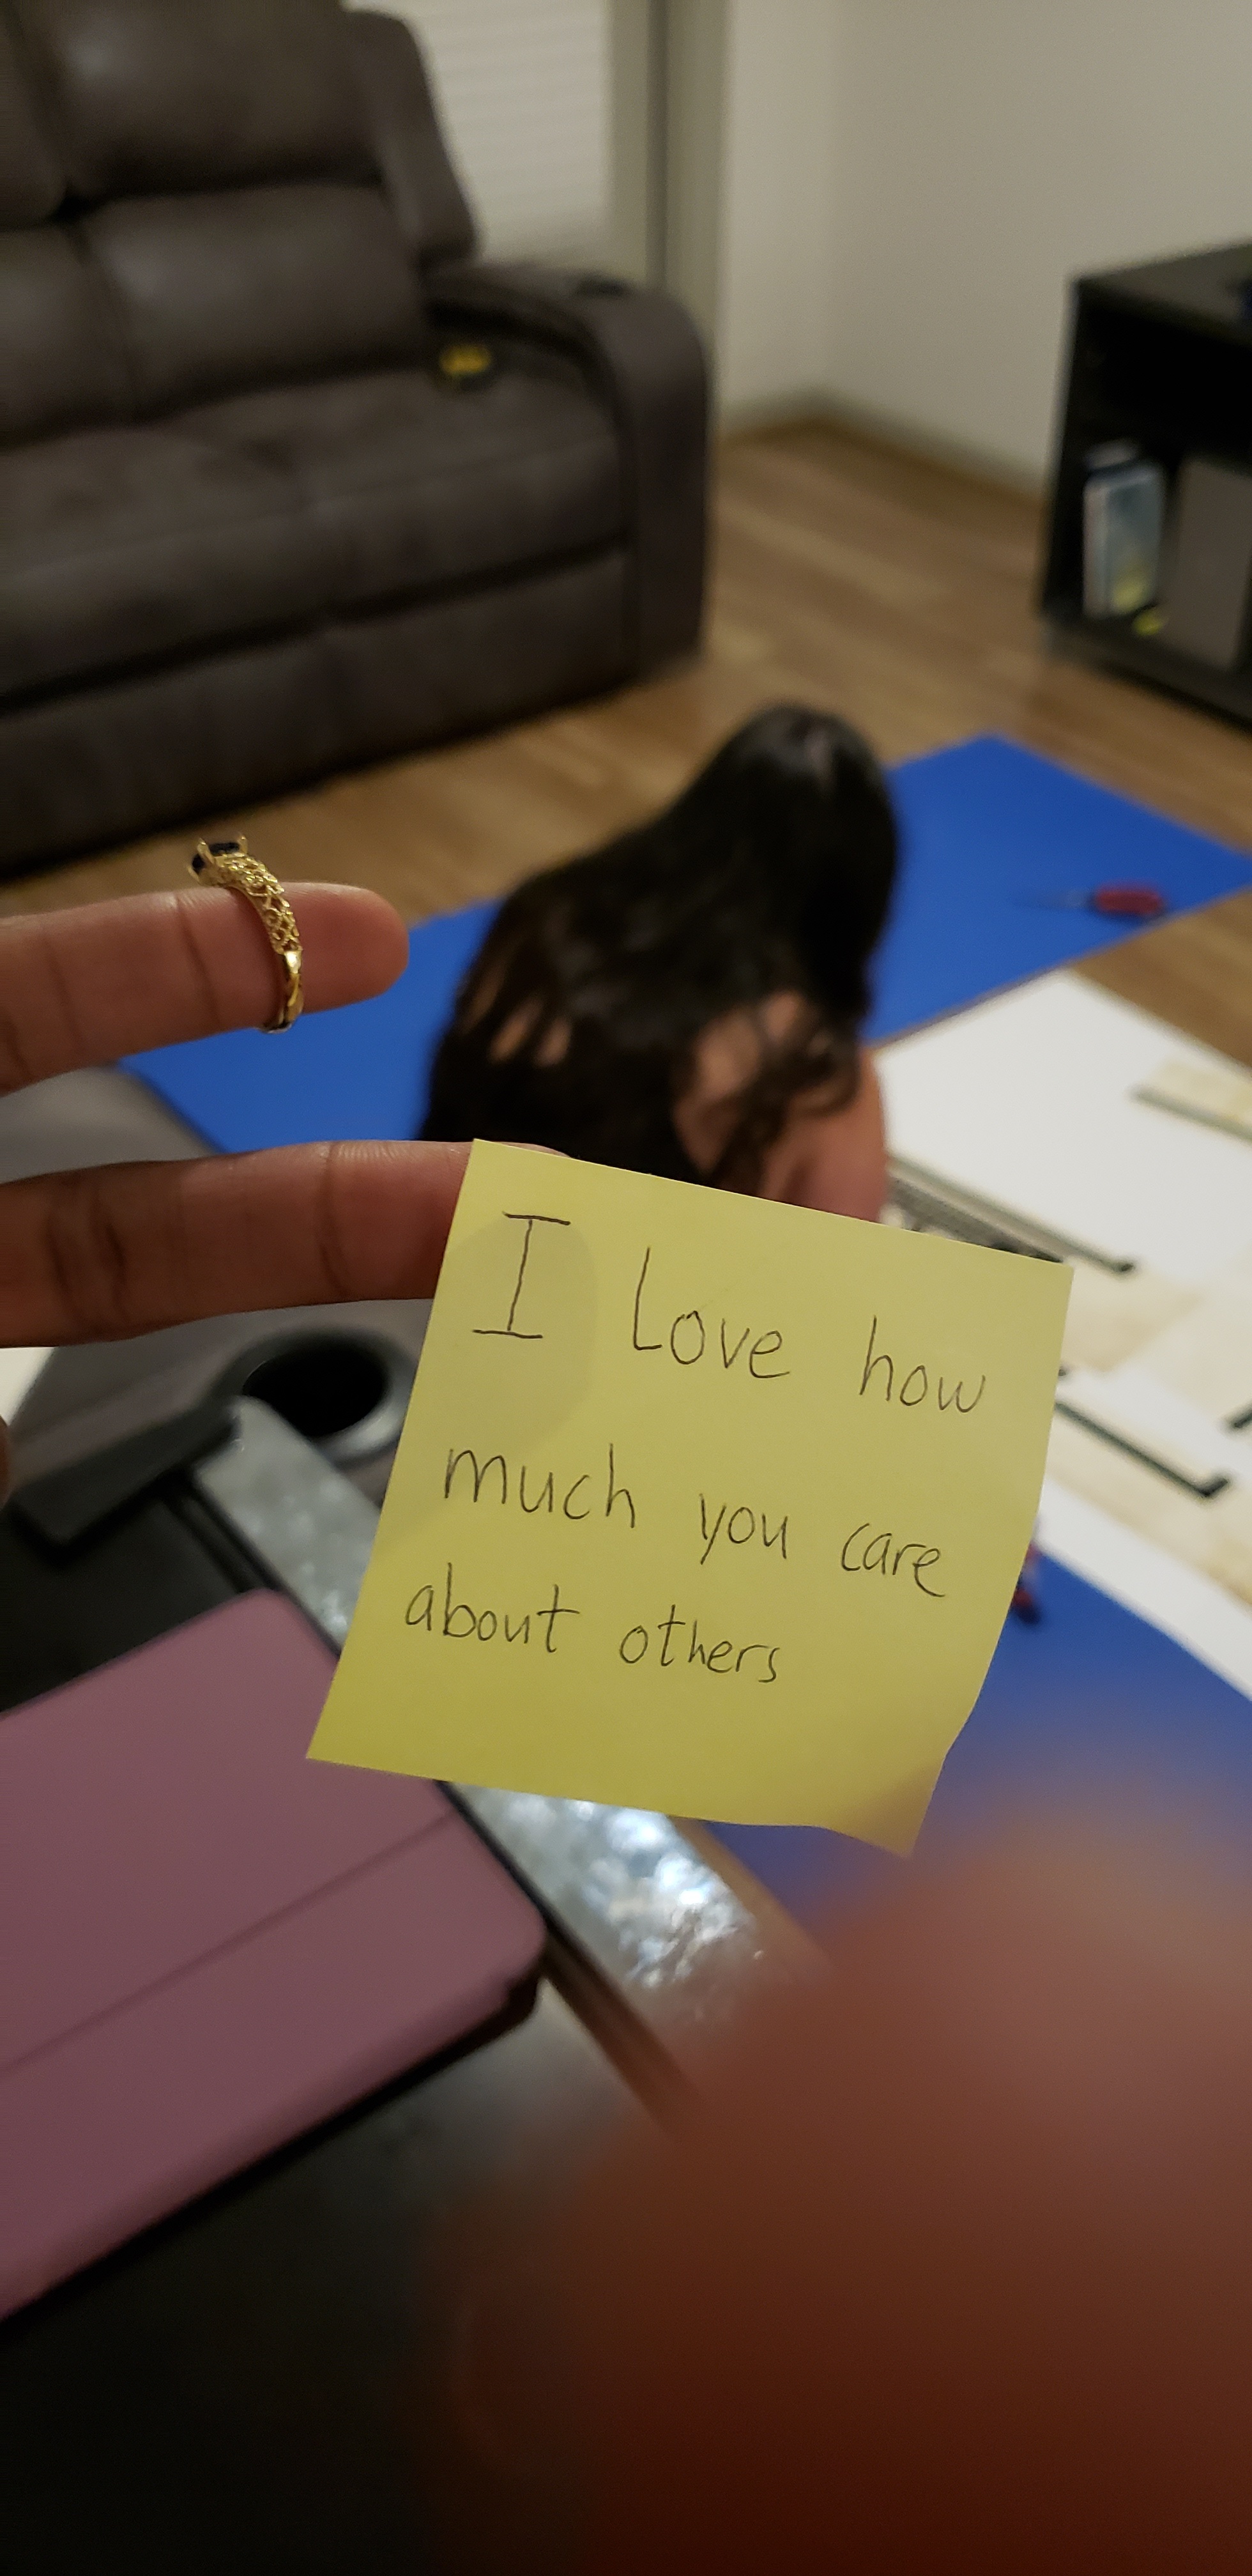 I Love how
much you care
about others